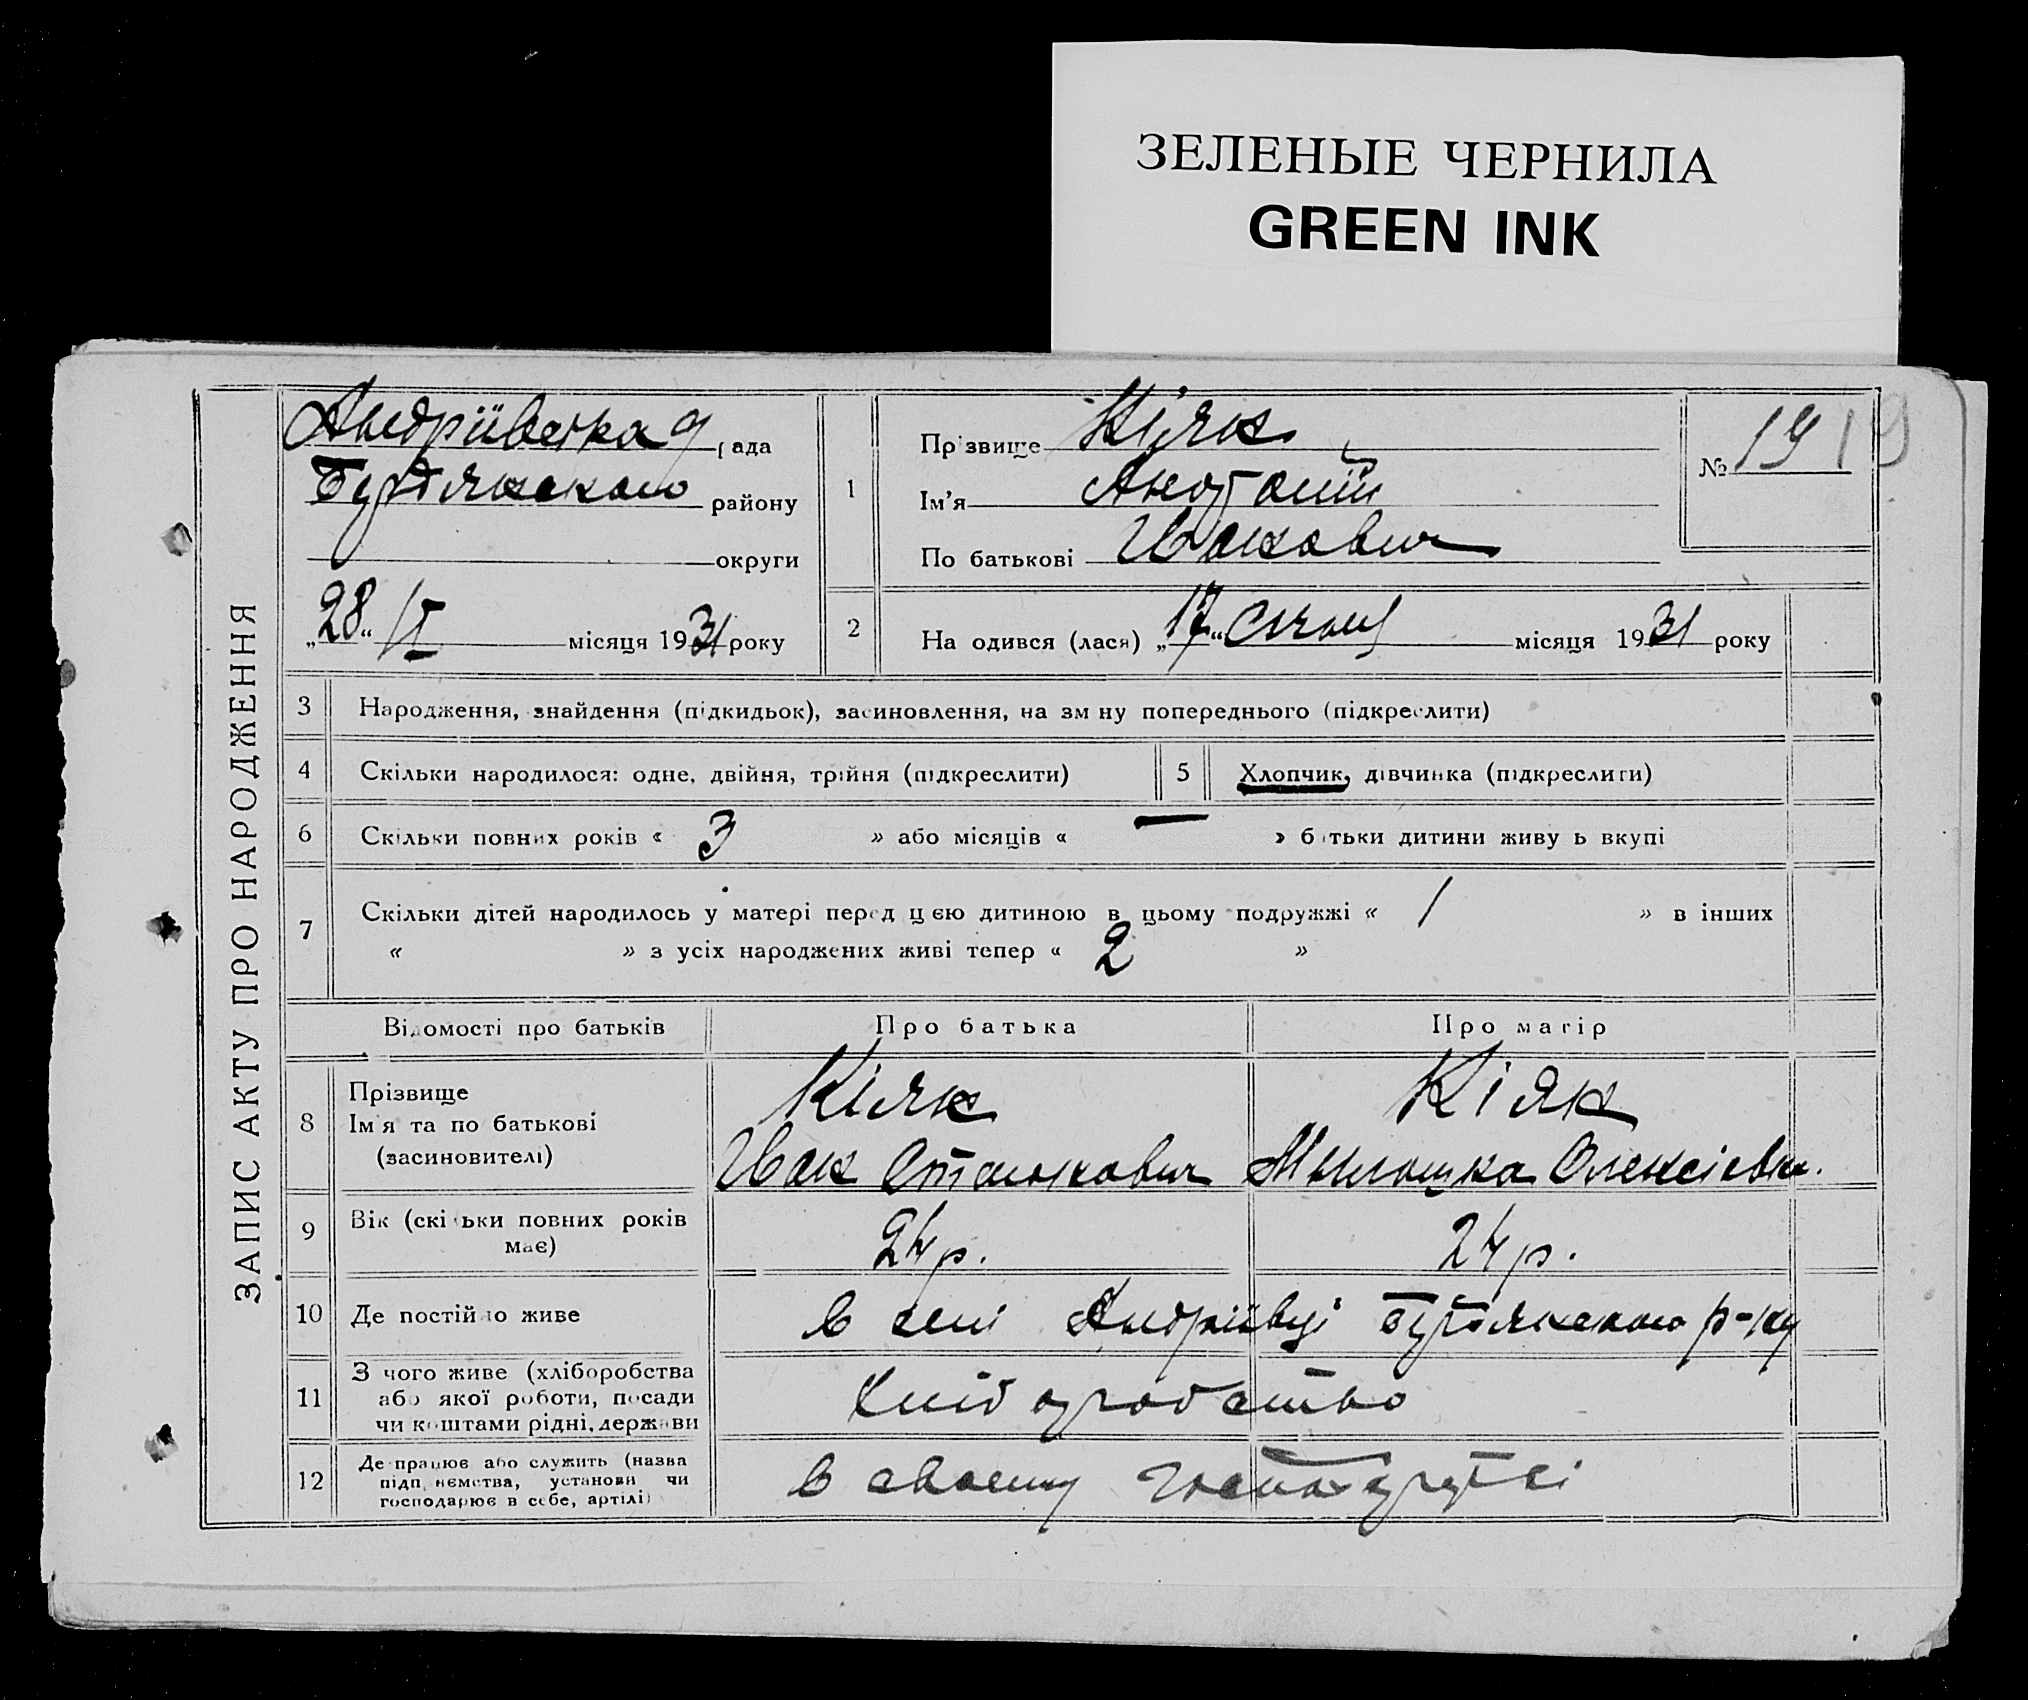 ЗЕЛЕНЫЕ ЧЕРНИЛА
GREEN INK
ЗАПИС АКТУ ПРО НАРОДЖЕННЯ
Андріївська рада
району
округи
„28“ /II місяця 1931 року
1
Прізвище Кіяк
Ім'я
По батькові Иванович
№ 19 19
2
На одився (лася) „17“ місяця 1931 року
3
Народження, знайдення (підкидьок), засиновлення, на зм ну попереднього (підкреслити)
4
Скільки народилося: одне, двійня, трійня (підкреслити)
5
Хлопчик, дівчинка (підкреслити)
6
Скільки повних років « 3 » або місяців « — » батьки дитини живу ь вкупі
7
Скільки дітей народилось у матері перед цією дитиною в цьому подружжі « 1 » в інших
« » з усіх народжених живі тепер « 2 »
Відомості про батьків
Про батька
Про матір
8
Прізвище
Ім'я та по батькові
(засиновителі)
Кіяк
Иван
Кіяк
Олексіевн.
9
Вік (скільки повних років
має)
24 р.
24 р.
10
Де постійно живе
в селі Андріївці р-ну
11
З чого живе (хліборобства
або якої роботи, посади
чи коштами рідні, держави
хліборобство
12
Де працює або служить (назва
підприємства, установи чи
господарює в себе, артілі)
в своему